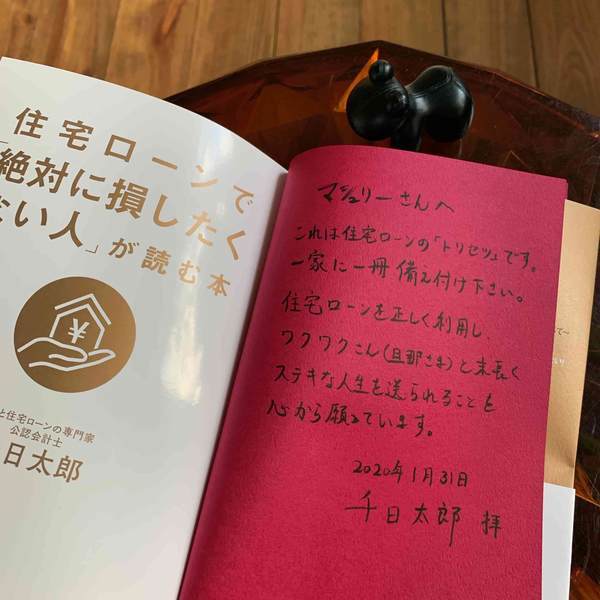 住宅ローンで
絶対に損したく
ない人」が読む本
と住宅ローンの専門家
公認会計士
日太郎
マシュリーさんへ
これは住宅ローンの「トリセツ」です。
一家に一冊備え付け下さい。
住宅ローンを正しく利用し、
ワクワクさん(旦那さま)と末長く
ステキな人生を送られることを
心から願っています。
2020年1月31日
千日太郎 拝